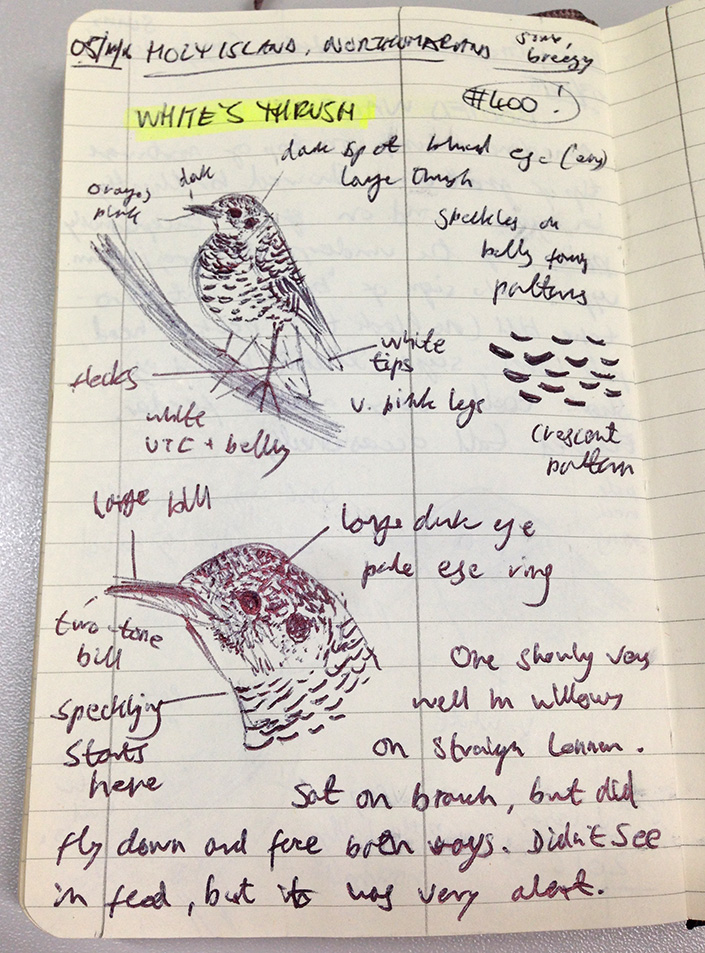 HOLY ISLAND, NORTHUMBERLAND
Some, breezy
#400!
WHITE'S THRUSH
dark spot behind eye (ear)
large thrush
orangey pink
dark
Speckles on
belly
patterns
white
tips
flecks
V. pink legs
white
UTC + belly
Crescent
pattern
large bill
large dark eye
pale eye ring
two-tone
bill
Speckling
Starts
here
One showing very
well in willows
on Straight Lonnen.
Sat on branch, but did
fly down and face both ways. Didn't see
it feed, but it was very alert.